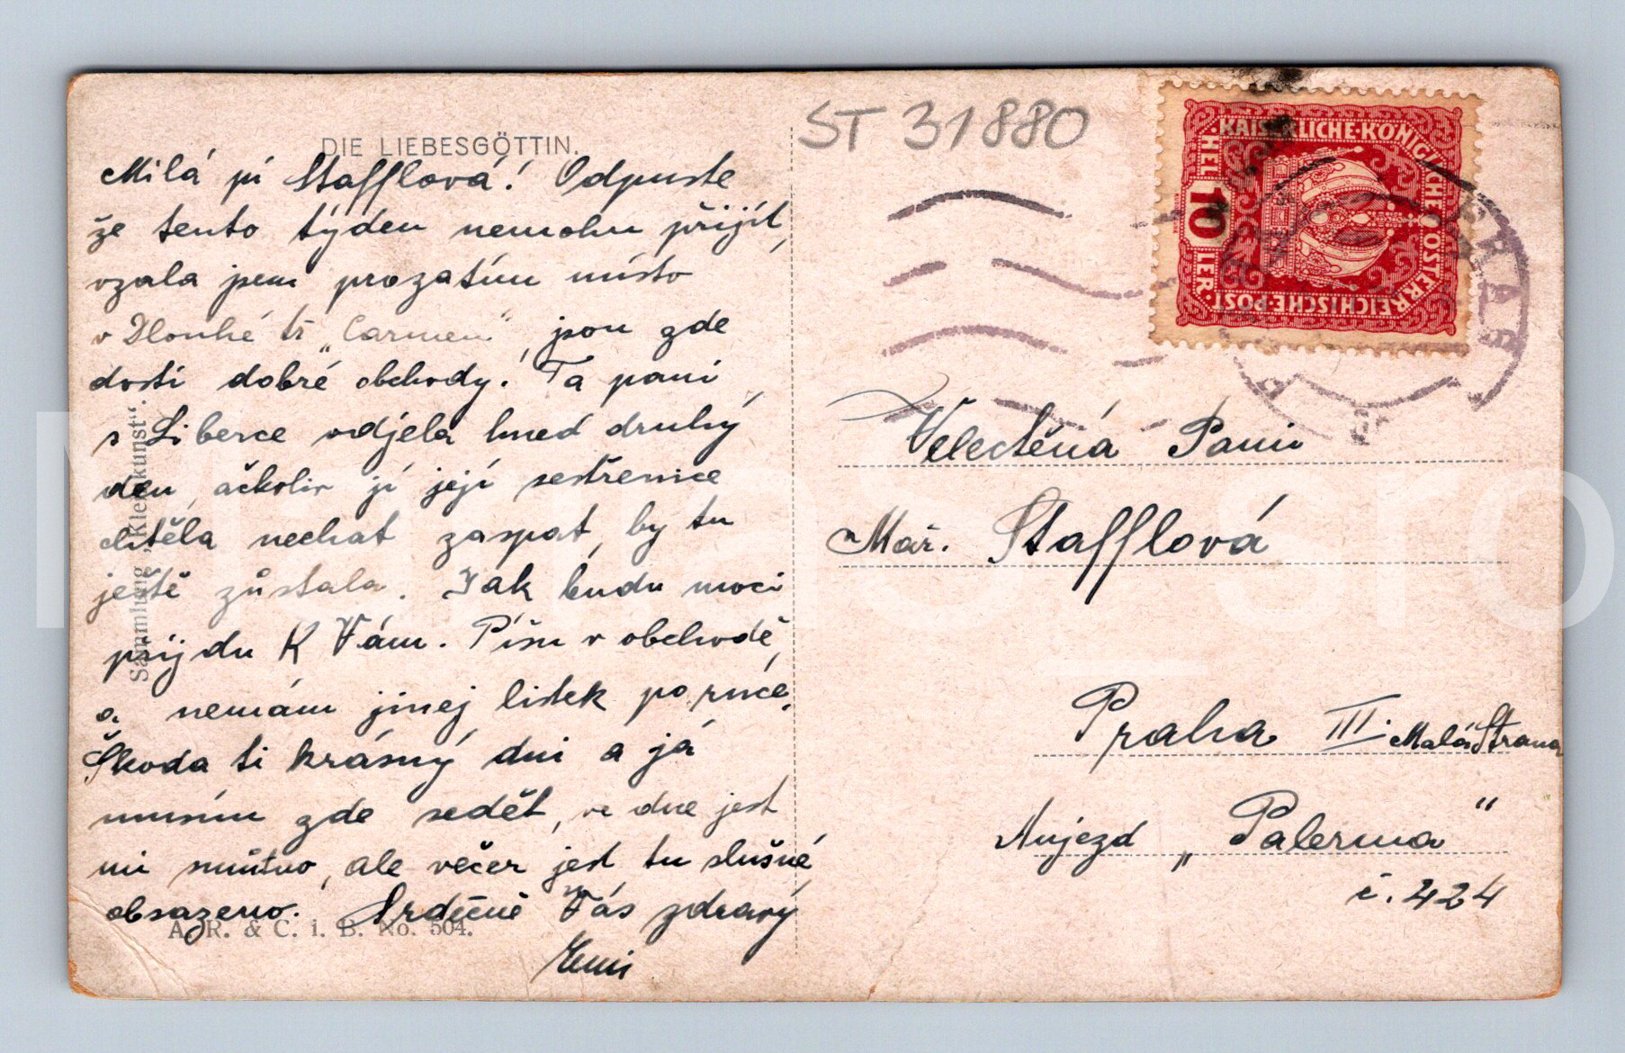 ST 31880
DIE LIEBESGÖTTIN.
Milá pí Stafflová! Odpuste
že tento týden nemohu přijít,
vzala jsem prozatím místo
v Dlouhé tř „Carmen", jsou zde
dosti dobré obchody. Ta paní
z Liberce odjela hned druhý
den, ačkoliv jí její sestřenice
chtěla nechat zaspat, by tu
ještě zůstala. Jak budu moci
přijdu K Vám. Píšu v obchodě,
a nemám jinej lístek po ruce.
Škoda ti krásný dni a já
musím zde sedět, ve dne jest
mi smutno, ale večer jest tu slušně
obsazeno. Srdečně Vás zdravý
Emi
Sammlung „Kleinkunst".
A. R. & C. i. B. No. 504.
KAISERLICHE·KÖNIGLICHE·ÖSTERREICHISCHE·POST
10
HELLER
Velectěná Paní
Mař. Stafflová
Praha III. Malá Strana
Aujezd „Palerma"
č. 424